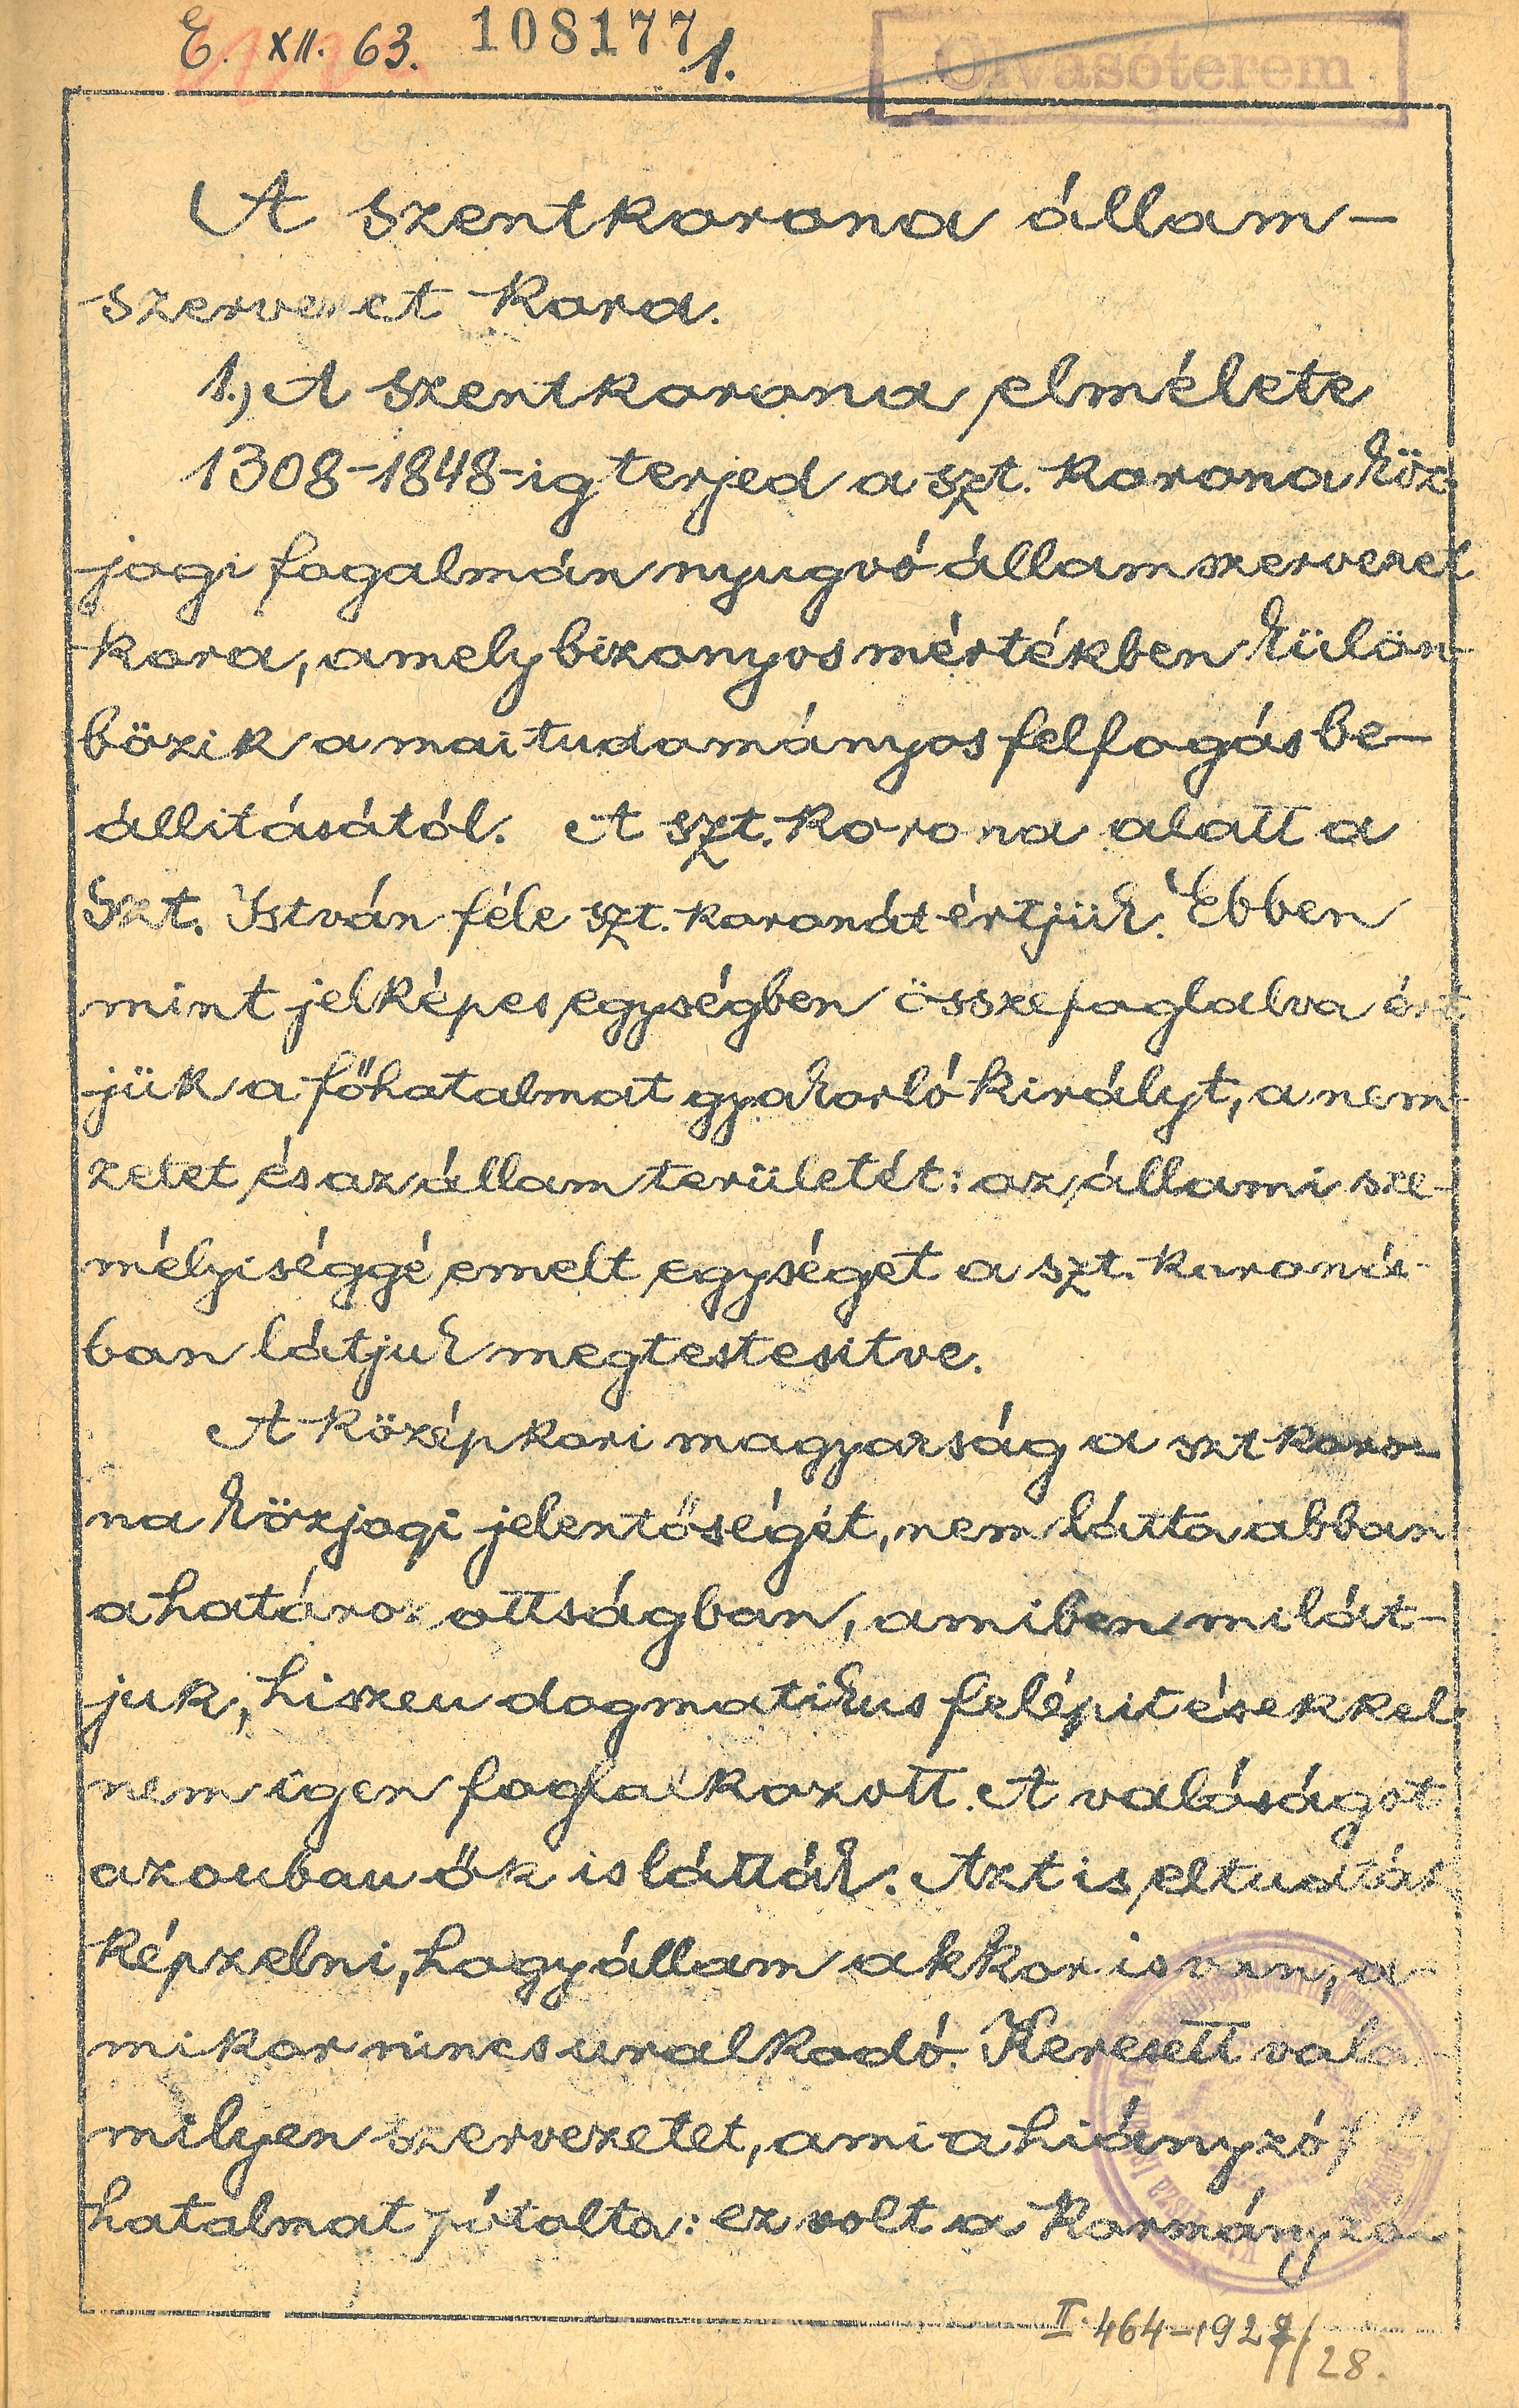 E. XII. 63. 108177 1.
Olvasóterem
A szentkorona állam-
szervezet kora.
1.) A szentkorona elmélete
1308-1848-ig terjed a szt. korona köz-
jogi fogalmán nyugvó államszervezet
kora, amely bizonyos mértékben külön-
bözik a mai tudományos felfogás be-
állitásától. A szt. korona alatt a
Szt. István féle szt. koronát értjük. Ebben
mint jelképes egységben összefoglalva ért-
jük a főhatalmat gyakorló királyt, a nem-
zetet és az állam területét: az állami sze-
mélyiséggé emelt egységet a szt. koroná-
ban látjuk megtestesitve.
A középkori magyarság a szt koro-
na közjogi jelentőségét, nem látta abban
a határozottságban, amiben mi lát-
juk, hiszen dogmatikus felépitésekkel
nem igen foglalkozott. A valóságot
azonban ők is látták. Azt is el tudták
képzelni, hogy állam akkor is van, a-
mikor nincs uralkodó. Keresett vala-
milyen szervezetet, ami a hiányzó fő-
hatalmat pótolta: ez volt a kormányzói
II. 464-1927/28.